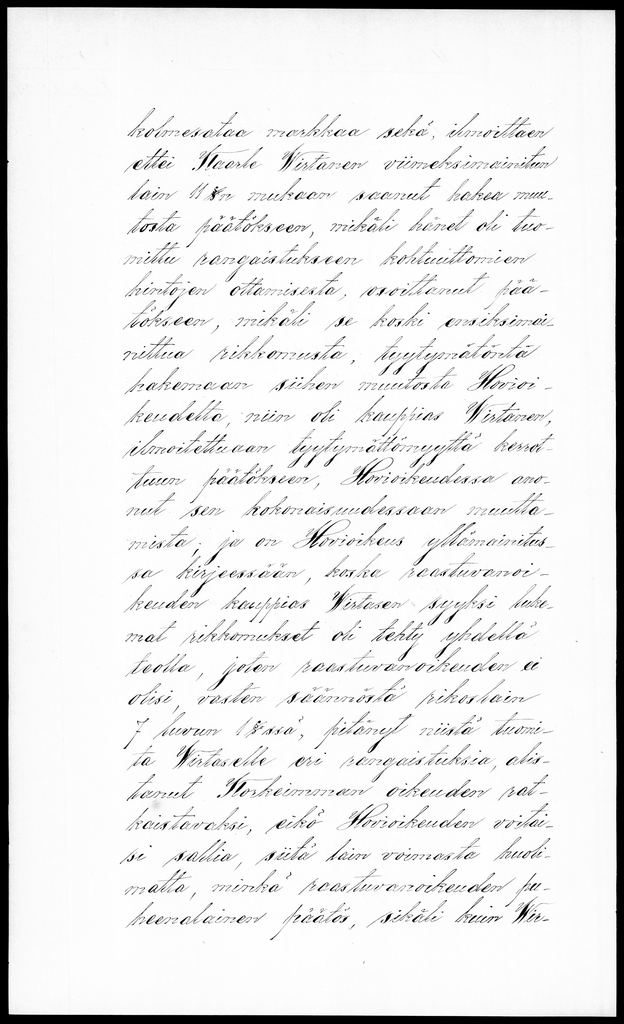 kolmesataa markkaa sekä, ilmoittaen
ettei Kaarle Wirtanen viimeksimainitun
lain 11 §:n mukaan saanut hakea muu-
tosta päätökseen, mikäli hänet oli tuo-
mittu rangaistukseen kohtuuttomien
hintojen ottamisesta, osoittanut pää-
tökseen, mikäli se koski ensiksimai-
nittua rikkomusta, tyytymätöntä
hakemaan siihen muutosta Hovioi-
keudelta, niin oli kauppias Wirtanen,
ilmoitettuaan tyytymättömyyttä kerrot-
tuun päätökseen, Hovioikeudessa ano-
nut sen kokonaisuudessaan muutta-
mista; ja on Hovioikeus yllämainitus-
sa kirjeessään, koska raastuvanoi-
keuden kauppias Wirtasen syyksi luke-
mat rikkomukset oli tehty yhdellä
teolla, joten raastuvanoikeuden ei
olisi, vasten säännöstä rikoslain
7 luvun 1 §:ssä, pitänyt niistä tuomi-
ta Wirtaselle eri rangaistuksia, alis-
tanut Korkeimman oikeuden rat-
kaistavaksi, eikö Hovioikeuden voitai-
si sallia, siitä lain voimasta huoli-
matta, minkä raastuvanoikeuden pu-
heenalainen päätös, sikäli kuin Wir-